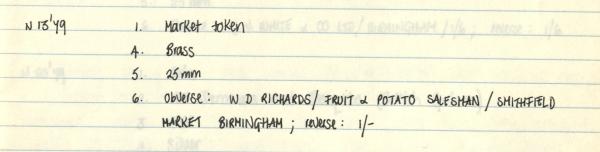 N13'79 1. Market token
4. Brass
5. 25mm
6. obverse: W D RICHARDS/ FRUIT & POTATO SALESMAN / SMITHFIELD
MARKET BIRMINGHAM; reverse: 1/-